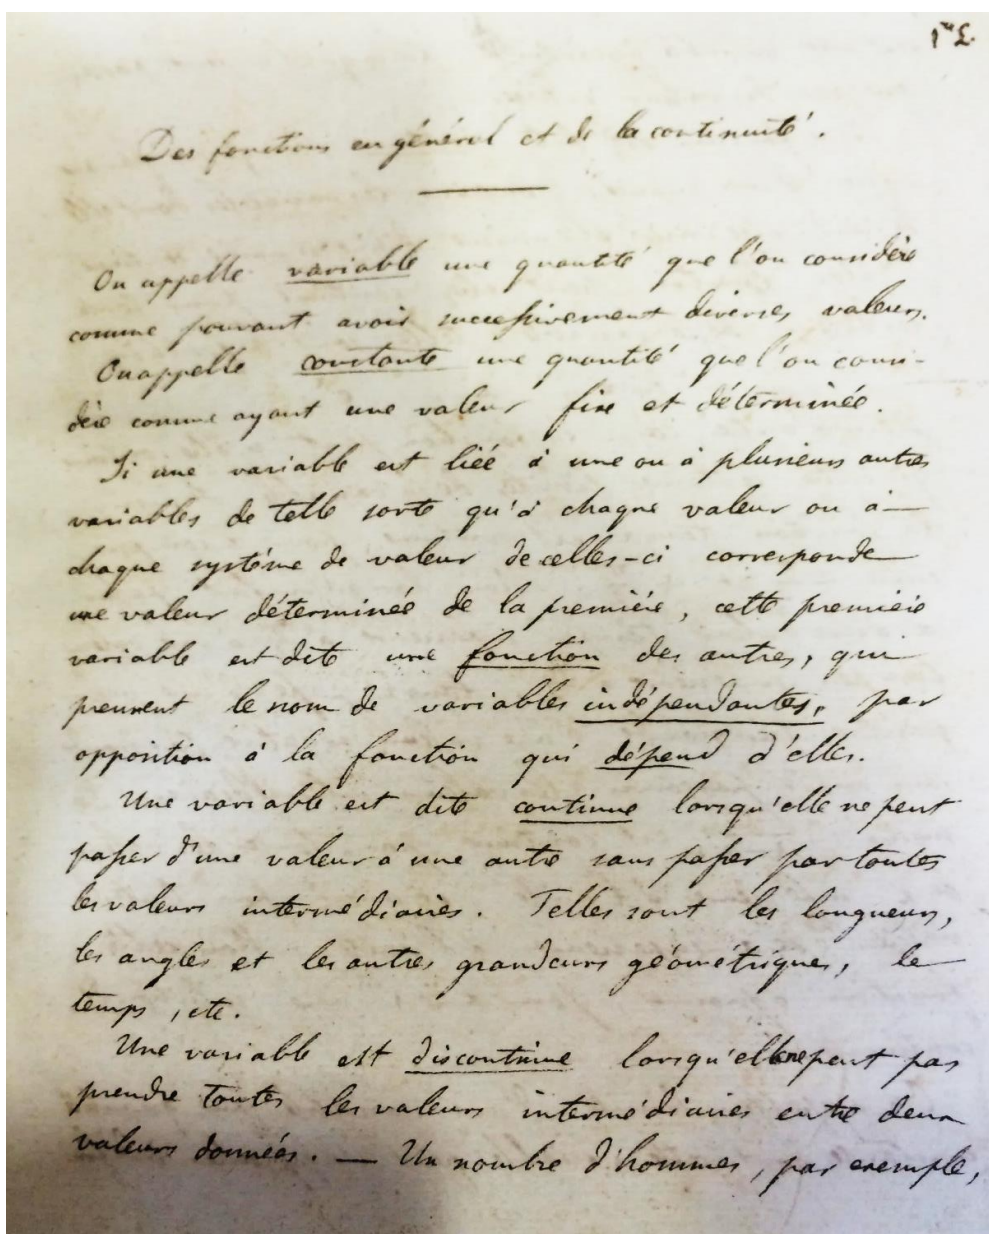 1re L.
Des fonctions en général et de la continuité.
On appelle variable une quantité que l'on considère
comme pouvant avoir successivement diverses valeurs.
On appelle constante une quantité que l'on consi-
dère comme ayant une valeur fixe et déterminée.
Si une variable est liée à une ou à plusieurs autres
variables de telle sorte qu'à chaque valeur ou à
chaque système de valeur de celles-ci corresponde
une valeur déterminée de la première, cette première
variable est dite une fonction des autres, qui
prennent le nom de variables indépendantes, par
opposition à la fonction qui dépend d'elles.
Une variable est dite continue lorsqu'elle ne peut
passer d'une valeur à une autre sans passer par toutes
les valeurs intermédiaires. Telles sont les longueurs,
les angles et les autres grandeurs géométriques, le
temps, etc.
Une variable est discontinue lorsqu'elle ne peut pas
prendre toutes les valeurs intermédiaires entre deux
valeurs données. — Un nombre d'hommes, par exemple,